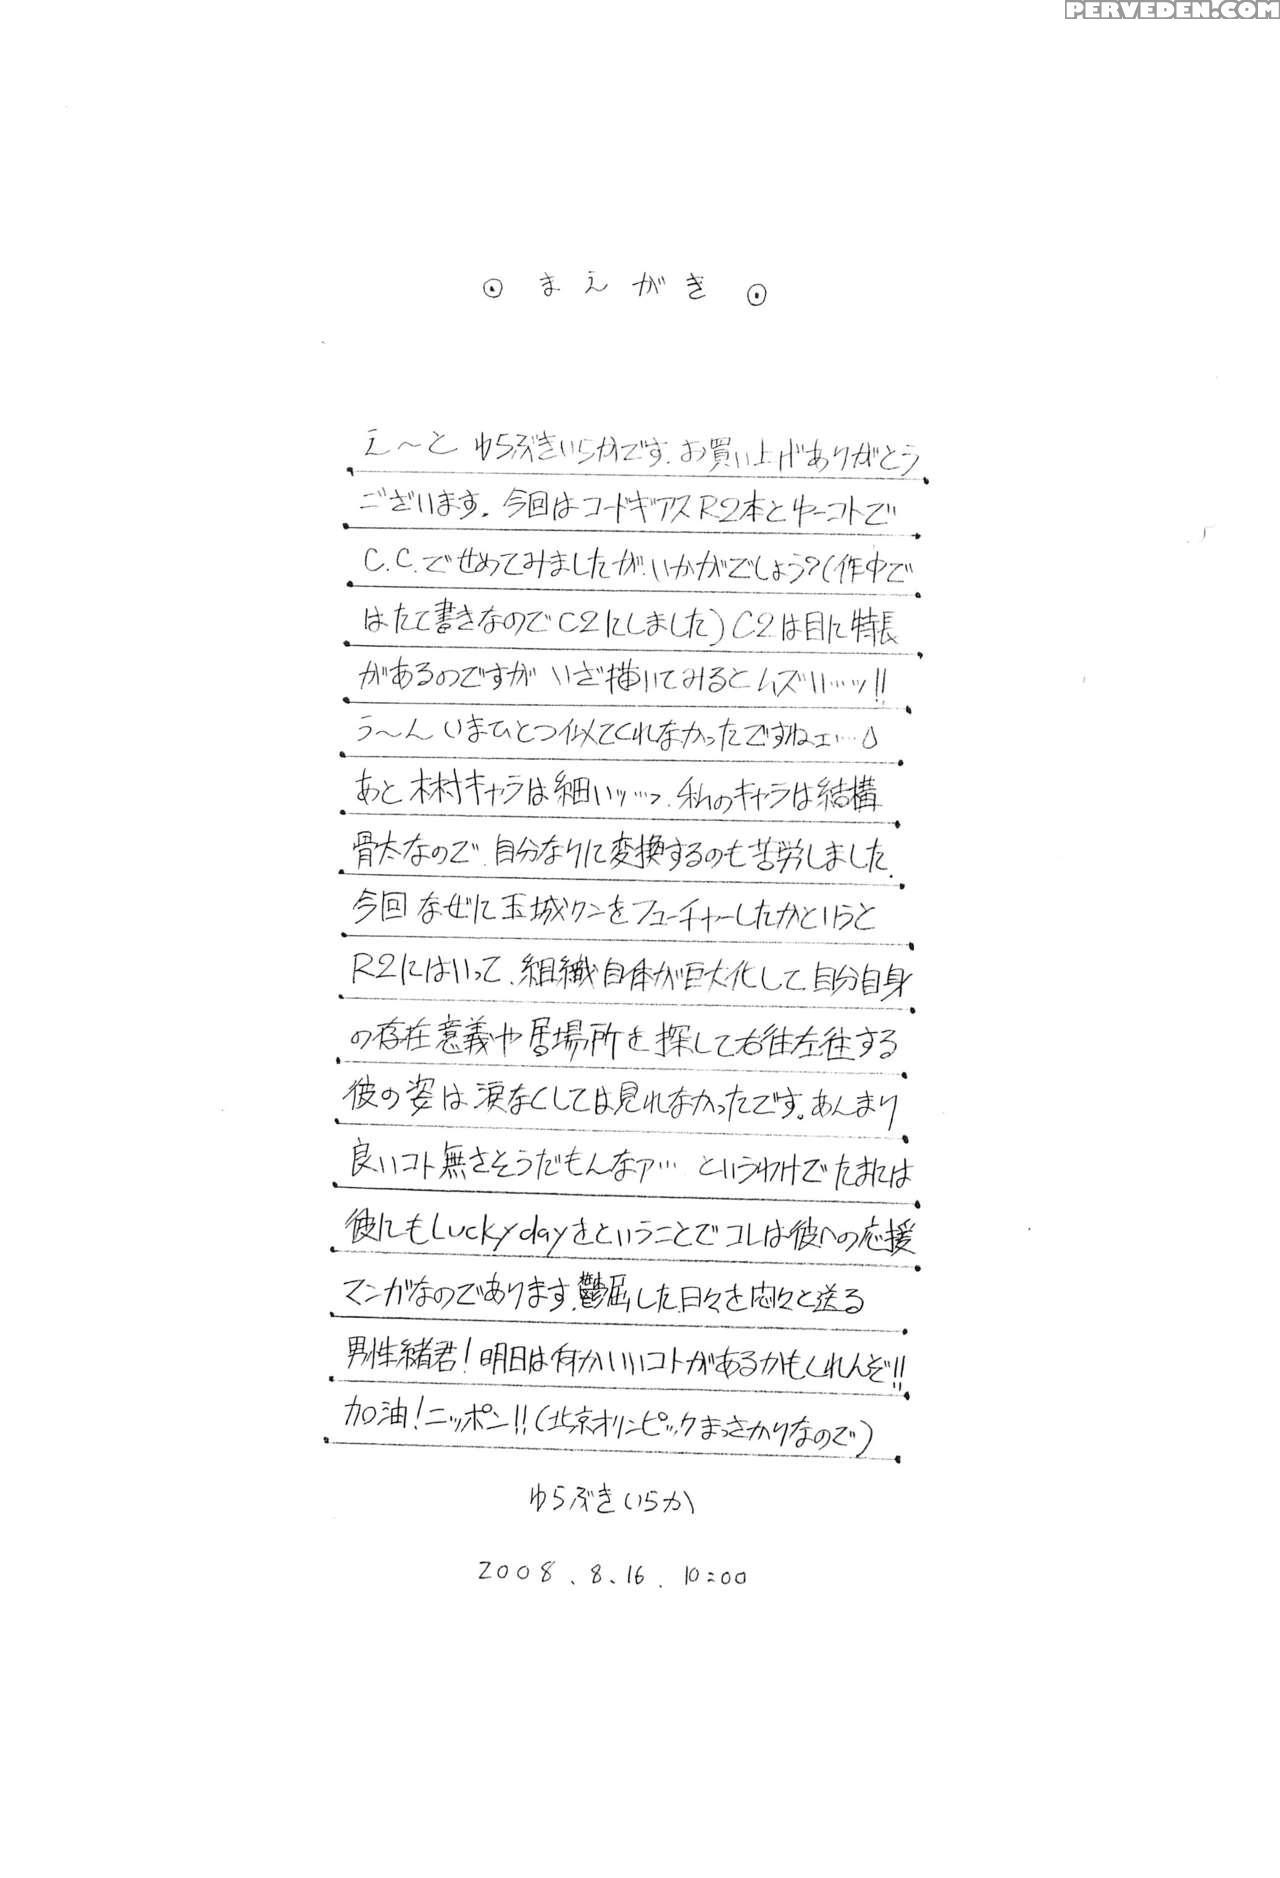 PERVEDEN.COM
まえがき
え〜と ゆらぶきいらかです。お買い上げありがとう
ございます。今回はコードギアスR2本とゆーコトで
C.C.でせめてみましたが、いかがでしょう?(作中で
はたて書きなのでC2にしました)C2は目に特長
があるのですが いざ描いてみるとムズい…ッ!!
う〜ん いまひとつ似てくれなかったですねェ…
あと 木村キャラは細いッ…っ、私のキャラは結構
骨太なので、自分なりに変換するのも苦労しました。
今回 なぜに玉城クンをフューチャーしたかというと
R2にはいって、組織自体が巨大化して、自分自身
の存在意義や居場所を探して右往左往する
彼の姿は涙なくしては見れなかったです。あんまり
良いコト無さそうだもんなァ… というわけでたまには
彼にもLucky dayをということでコレは彼への応援
マンガなのであります。鬱屈した日々を悶々と送る
男性緒君!明日は何かいいコトがあるかもしれんぞ!!
加油!ニッポン!!(北京オリンピックまっさかりなので)
ゆらぶきいらか
2008.8.16. 10:00